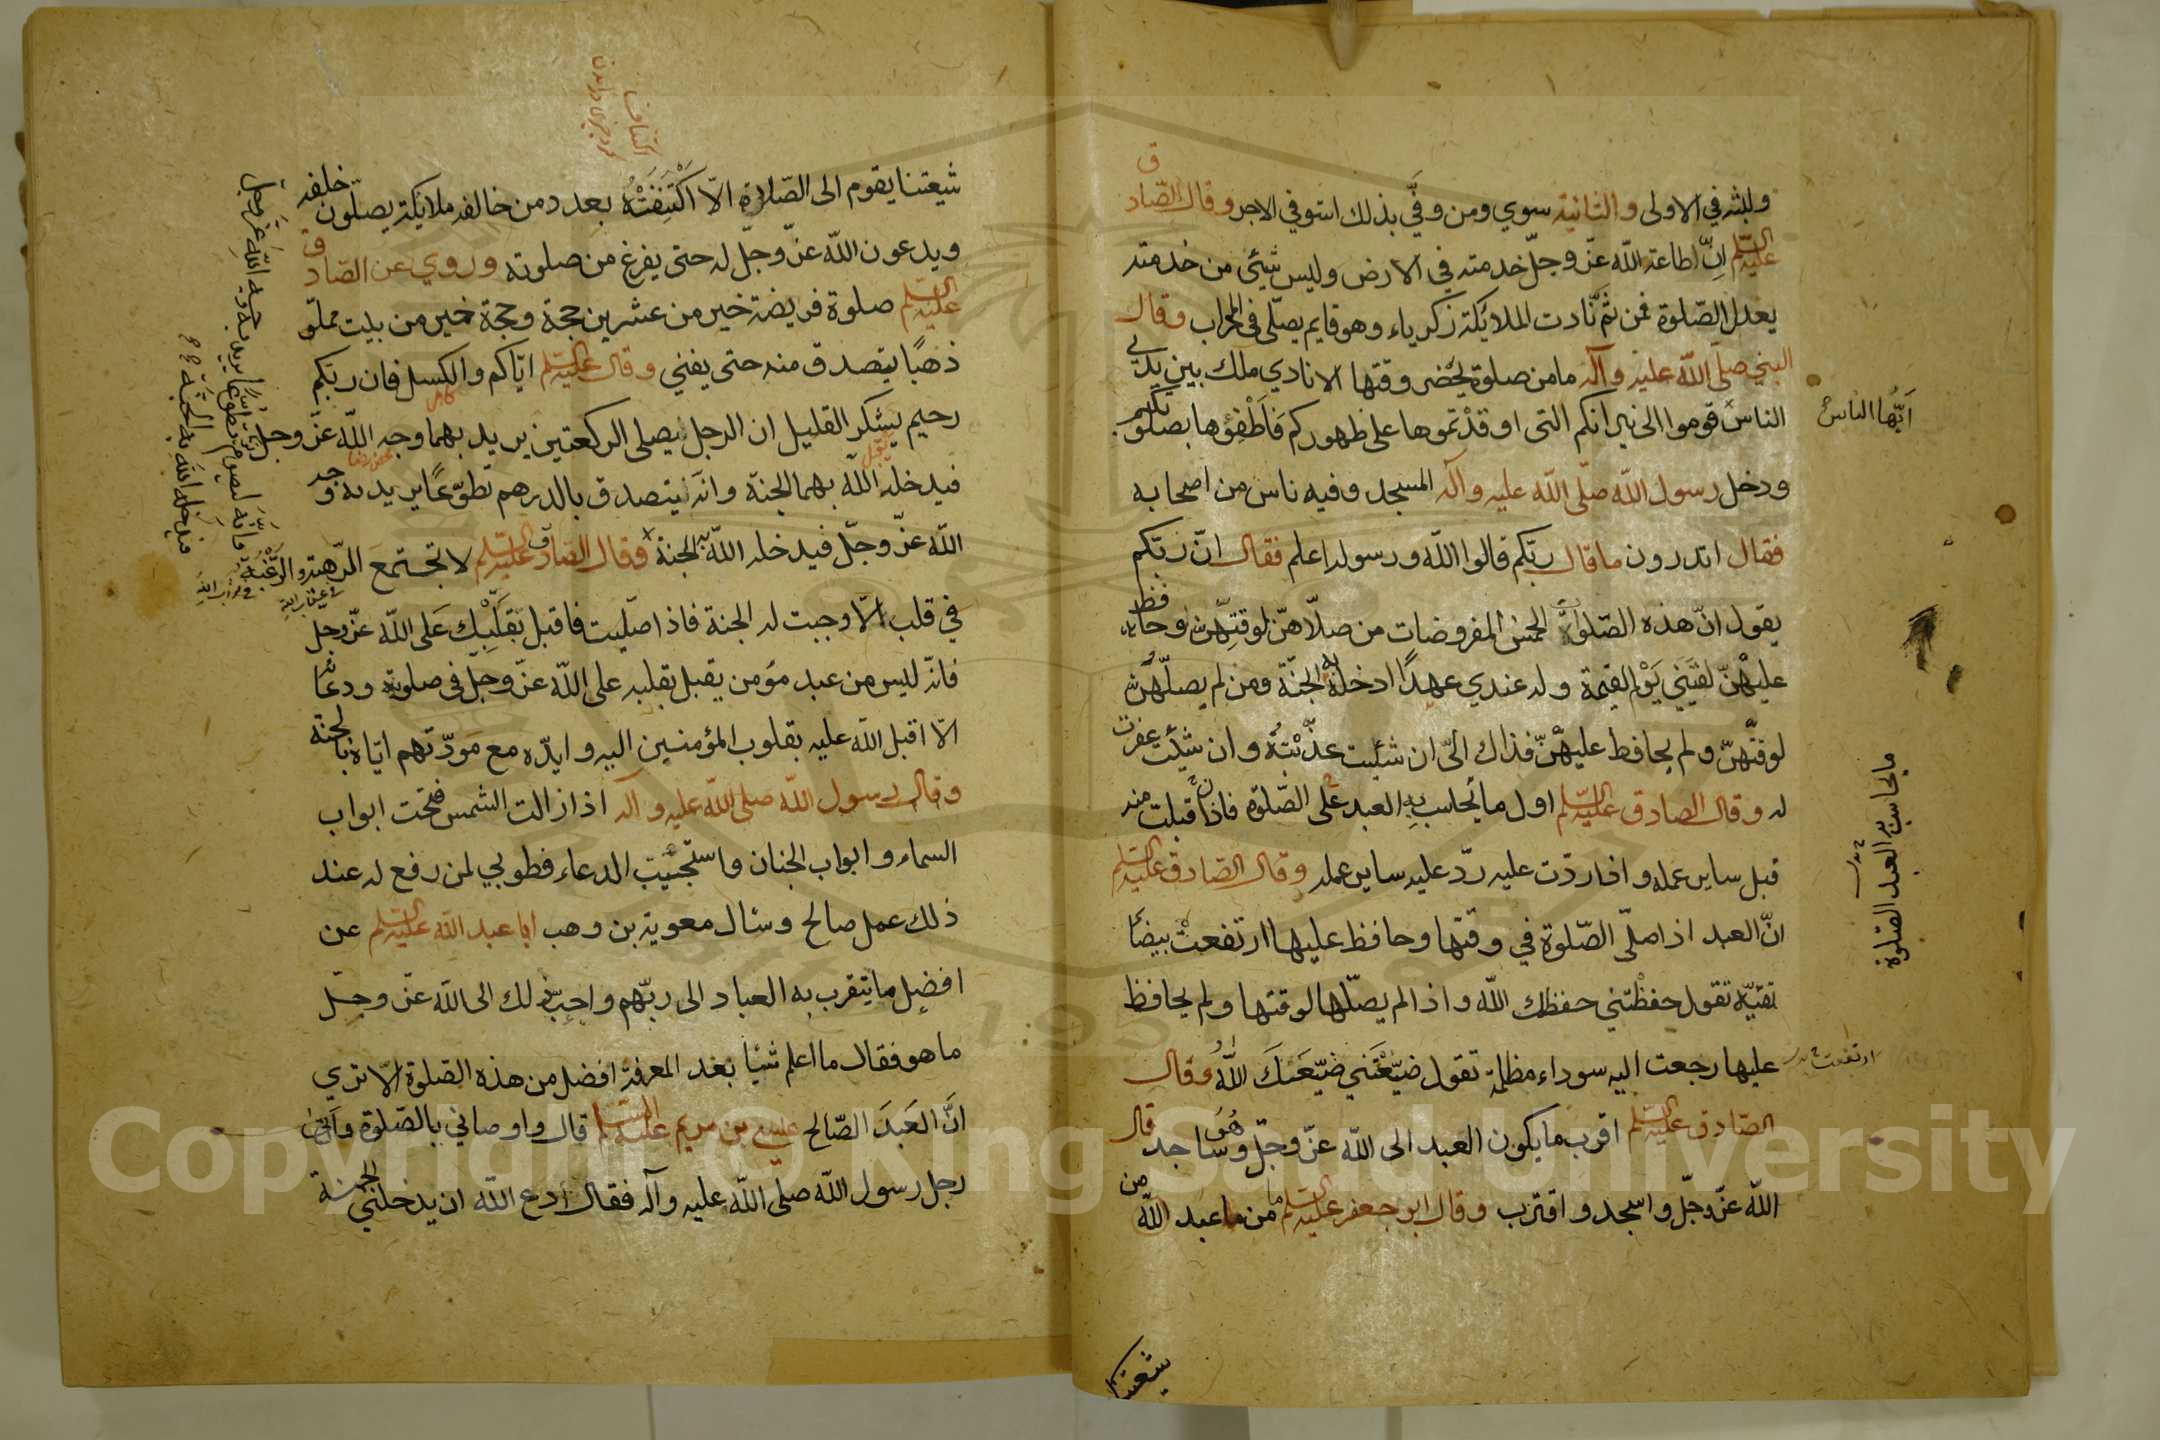 ولبثه في الاولى والثانية سوي ومن وفّي بذلك استوفي الاجر وقال الصّادق
عليه السّلم انّ طاعة اللّه عزّ وجلّ خدمته في الارض وليس شيئ من خدمته
يعدل الصّلوة فمن ثمّ نادت الملايكة زكرياء وهو قايم يصلّى في المحراب وقال
النبي صلّى اللّه عليه وآله ما من صلوة يحضر وقتها الا نادي ملك بين يدي
الناس قوموا الى نيرانكم التى اوقدتموها على ظهوركم فاطفؤها بصلوتكم
ايّها الناس
ودخل رسول اللّه صلّى اللّه عليه وآله المسجد وفيه ناس من اصحابه
فقال اتدرون ما قال ربّكم قالوا اللّه ورسوله اعلم فقال انّ ربّكم
يقول انّ هذه الصّلوات الخمس المفروضات من صلّاهنّ لوقتهنّ وحافظ
عليهنّ لقيني يوم القيمة وله عندي عهدًا ادخله به الجنّة ومن لم يصلّهنّ
لوقتهنّ ولم يحافظ عليهنّ فذاك الىّ ان شئت عذّبته وان شئت غفرت
له وقال الصادق عليه السّلم اول ما يحاسب به العبد على الصّلوة فاذا قبلت منه
قبل ساير عمله واذا ردّت عليه ردّ عليه ساير عمله وقال الصّادق عليه السّلم
ما يحاسب به العبد الصّلوة
انّ العبد اذا صلّى الصّلوة في وقتها وحافظ عليها ارتفعت بيضاء
نقيّة تقول حفظتني حفظك اللّه واذا لم يصلّها لوقتها ولم يحافظ
عليها رجعت اليه سوداء مظلمة تقول ضيّعتني ضيّعك اللّه وقال
ارتفعت
الصّادق عليه السّلم اقرب ما يكون العبد الى اللّه عزّ وجلّ وهو ساجد قال
اللّه عزّ وجلّ واسجد واقترب وقال ابو جعفر عليه السّلم ما من عبد اللّه من
شيعتنا
شيعتنا يقوم الى الصّلوة الّا اكتنفته بعدد من خالفه ملايكة يصلّون خلفه
ويدعون اللّه عزّ وجلّ له حتى يفرغ من صلوته وروي عن الصّادق
عليه السّلم صلوة فريضة خير من عشرين حجة وحجة خير من بيت مملوّ
ذهبًا يتصدق منه حتى يفني وقال عليه السّلم ايّاكم والكسل فان ربّكم
رحيم يشكر القليل ان الرجل يصلى الركعتين يريد بهما وجه اللّه عزّ وجل
فيدخله اللّه بهما الجنة وانّه ليتصدق بالدرهم تطوّعًا يريد به وجه
اللّه عزّ وجلّ فيدخله اللّه به الجنة وقال الصّادق عليه السّلم لا تجتمع الرّهبة والرّغبة
في قلب الّا وجبت له الجنة فاذا صلّيت فاقبل بقلبك على اللّه عزّ وجل
فانّه ليس من عبد مؤمن يقبل بقلبه على اللّه عزّ وجل في صلوته ودعائه
الّا اقبل اللّه عليه بقلوب المؤمنين اليه وايدّه مع مودّتهم ايّاه بالجنة
وقال رسول اللّه صلى اللّه عليه وآله اذا زالت الشمس فتحت ابواب
السماء وابواب الجنان واستجيب الدعاء فطوبي لمن رفع له عند
ذلك عمل صالح وسال معوية بن وهب ابا عبد اللّه عليه السّلم عن
افضل ما يتقرب به العباد الى ربّهم واحبّ ذلك الى اللّه عزّ وجلّ
ما هو فقال ما اعلم شيئا بعد المعرفة افضل من هذه الصّلوة الّا تري
انّ العبد الصّالح عيسى بن مريم عليه السّلم قال واوصاني بالصّلوة واتى
رجل رسول اللّه صلّى اللّه عليه وآله فقال ادع اللّه ان يدخلني الجنة
وانّه ليصوم اليوم تطوّعًا يريد به وجه اللّه عزّ وجلّ
فيدخله اللّه به الجنّة
Copyright © King Saud University